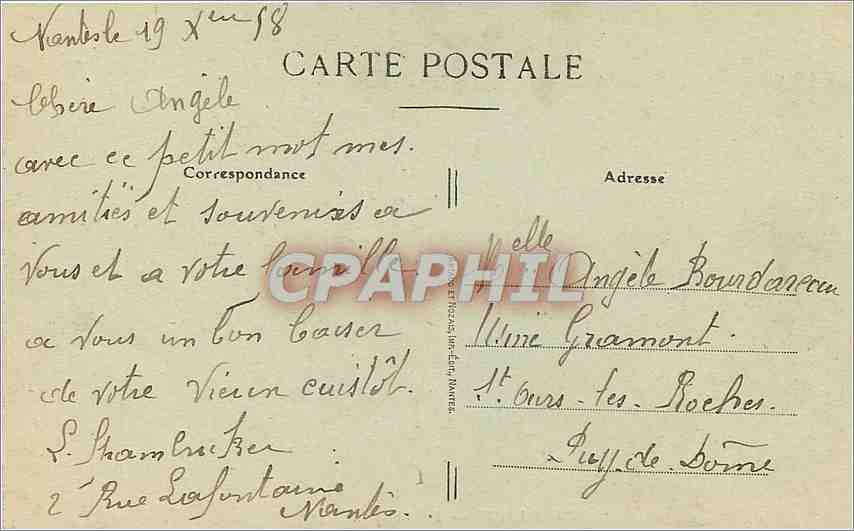 Nantes le 19 Xbre 58
CARTE POSTALE
Chère Angèle
avec ce petit mot mes.
Correspondance
amitiés et souvenirs a
Vous et a votre famille
a Vous un bon baiser
de votre Vieux cuistôt.
2 Rue Lafontaine
Nantes.
Adresse
Melle Angèle Bourdareau
Usine Gramont.
St Ours-les-Roches.
Puy-de-Dôme
ET NOZAIS, IMP.-ÉDIT., NANTES.
CPAPHIL